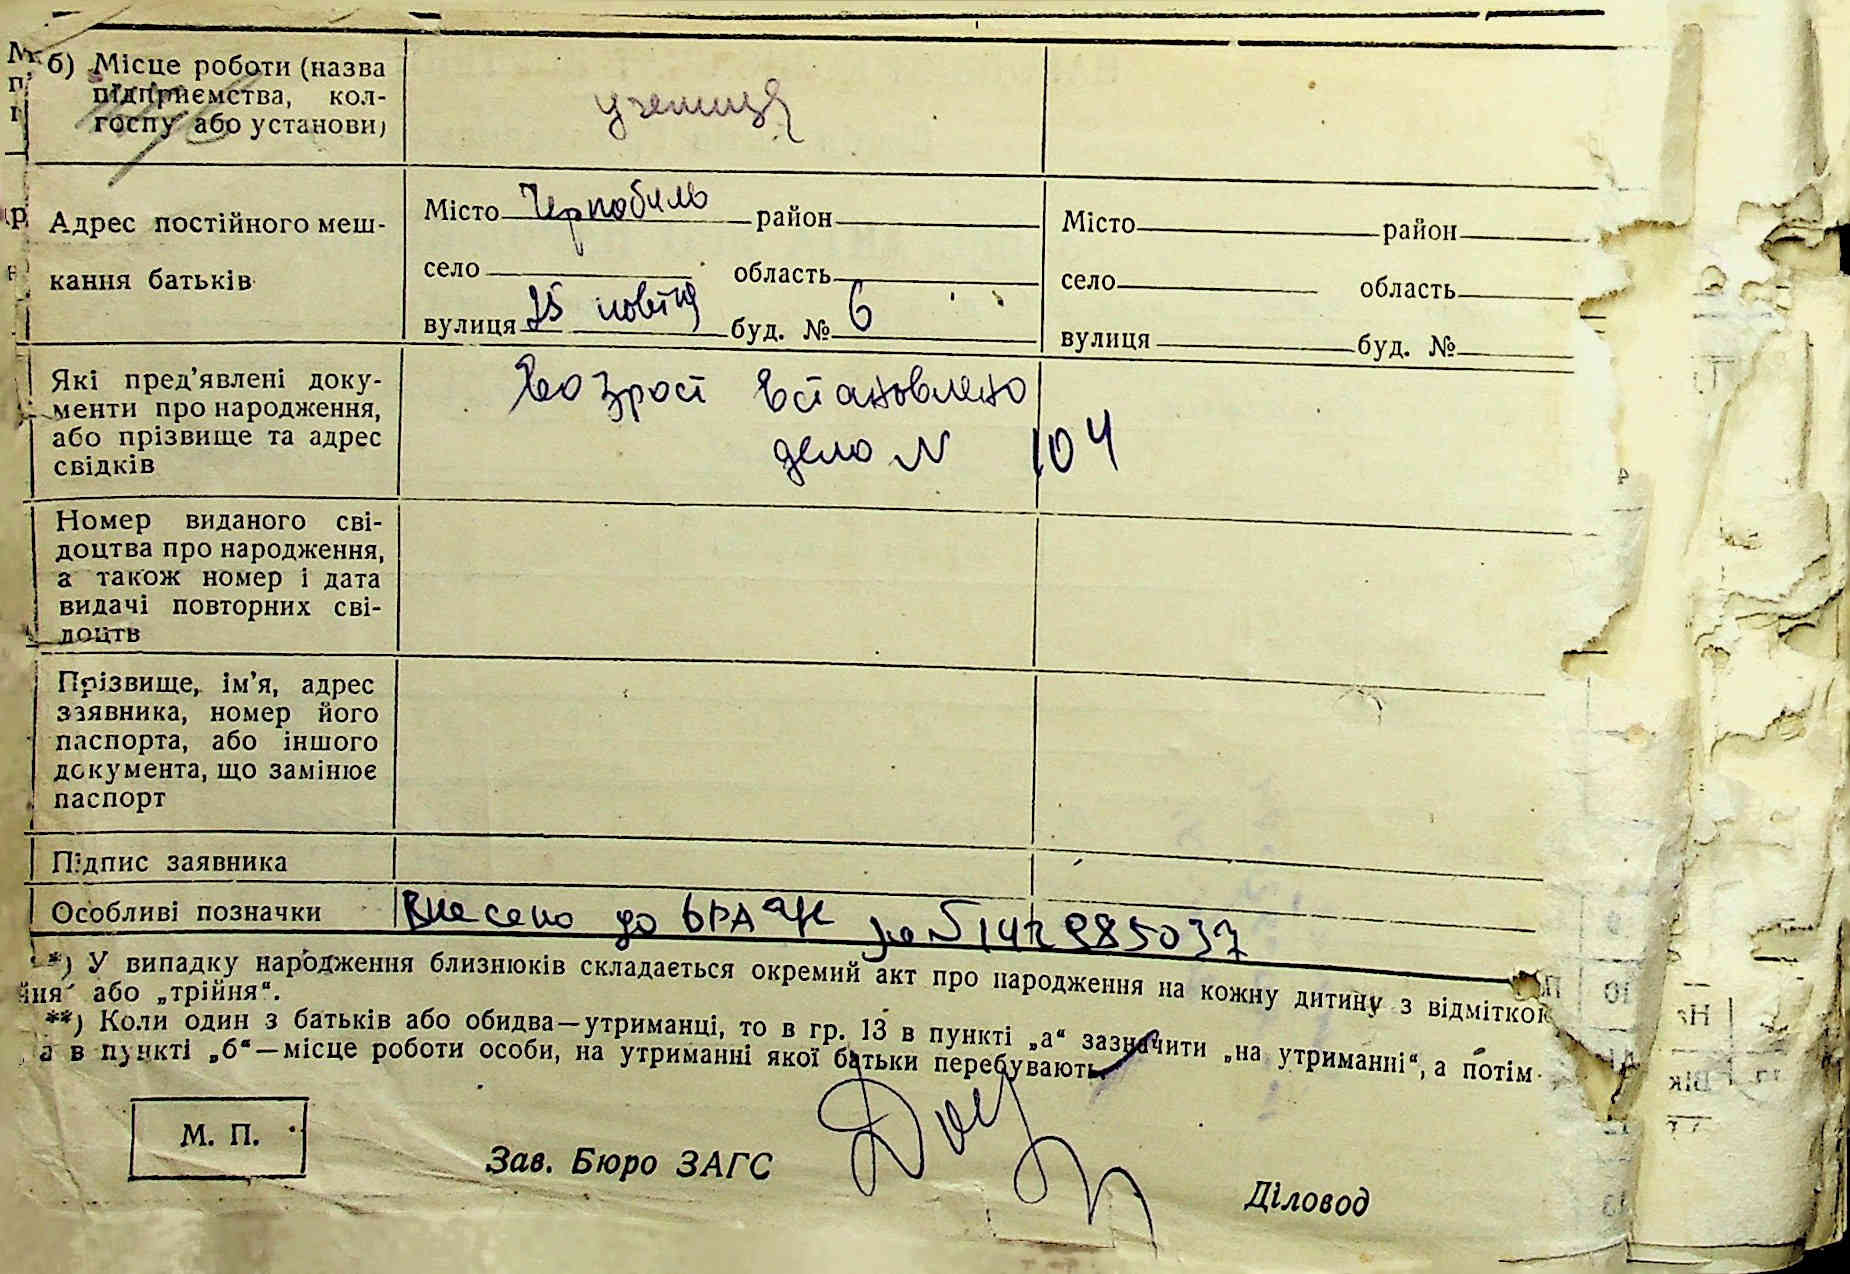 б) Місце роботи (назва
підприємства, кол-
госпу або установи)
учениця
Адрес постійного меш-
кання батьків
Місто Чернобиль район
село область
вулиця 25 буд. № 6
Місто район
село область
вулиця буд. №
Які пред'явлені доку-
менти про народження,
або прізвище та адрес
свідків
Возрост встановлено
дело N 104
Номер виданого сві-
доцтва про народження,
а також номер і дата
видачі повторних сві-
доцтв
Прізвище, ім'я, адрес
заявника, номер його
паспорта, або іншого
документа, що замінює
паспорт
Підпис заявника
Особливі позначки
Внесено до
*) У випадку народження близнюків складається окремий акт про народження на кожну дитину з відміткою
або „трійня“.
**) Коли один з батьків або обидва—утриманці, то в гр. 13 в пункті „а“ зазначити „на утриманні“, а потім
а в пункті „б“—місце роботи особи, на утриманні якої батьки перебувають.
М. П.
Зав. Бюро ЗАГС
Діловод